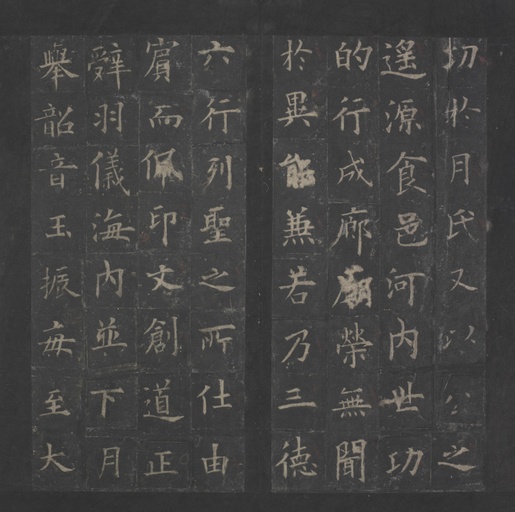 切於月氏又以公之
遥源食邑河内世功
的行成廊廟榮無聞
於異能兼若乃三德
六行列聖之所仕由
賓而佩印文創道正
辭羽儀海内並下月
舉韶音玉振每至大